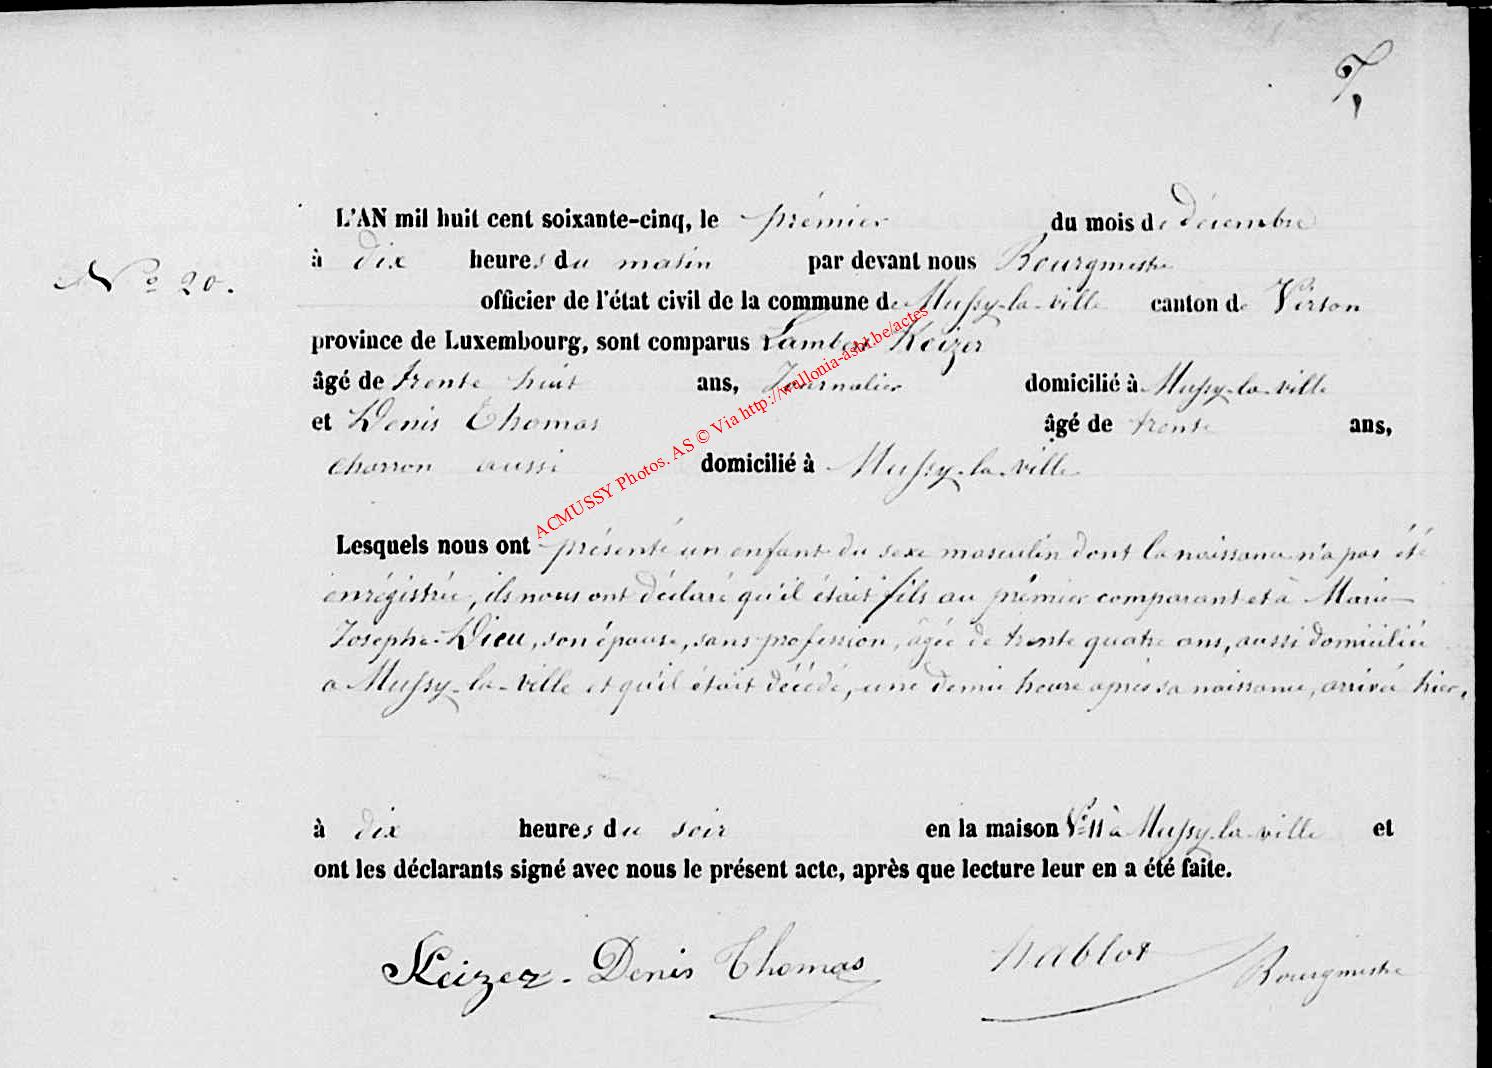 L'AN mil huit cent soixante-cinq, le prémier du mois de Décembre
à dix heures du matin par devant nous Bourgmestre
N° 20.
officier de l'état civil de la commune de Mussy-la-ville canton de Virton
province de Luxembourg, sont comparus Lambert Keizer
âgé de trente huit ans, Journalier domicilié à Mussy-la-ville
et Denis Thomas âgé de trente ans,
charron aussi domicilié à Mussy-la-ville
ACMUSSY Photos. AS © Via http://wallonia-asbl.be/actes
Lesquels nous ont présenté un enfant du sexe masculin dont la naissance n'a pas été
enrégistrée, ils nous ont déclaré qu'il était fils au prémier comparant et à Marie
Josephe Dieu, son épouse, sans profession, âgée de trente quatre ans, aussi domiciliée
a Mussy-la-ville et qu'il était décédé, une demie heure après sa naissance, arrivée hier,
à dix heures du soir en la maison N° 11 à Mussy-la-ville et
ont les déclarants signé avec nous le présent acte, après que lecture leur en a été faite.
Keizer - Denis Thomas Nablot Bourgmestre